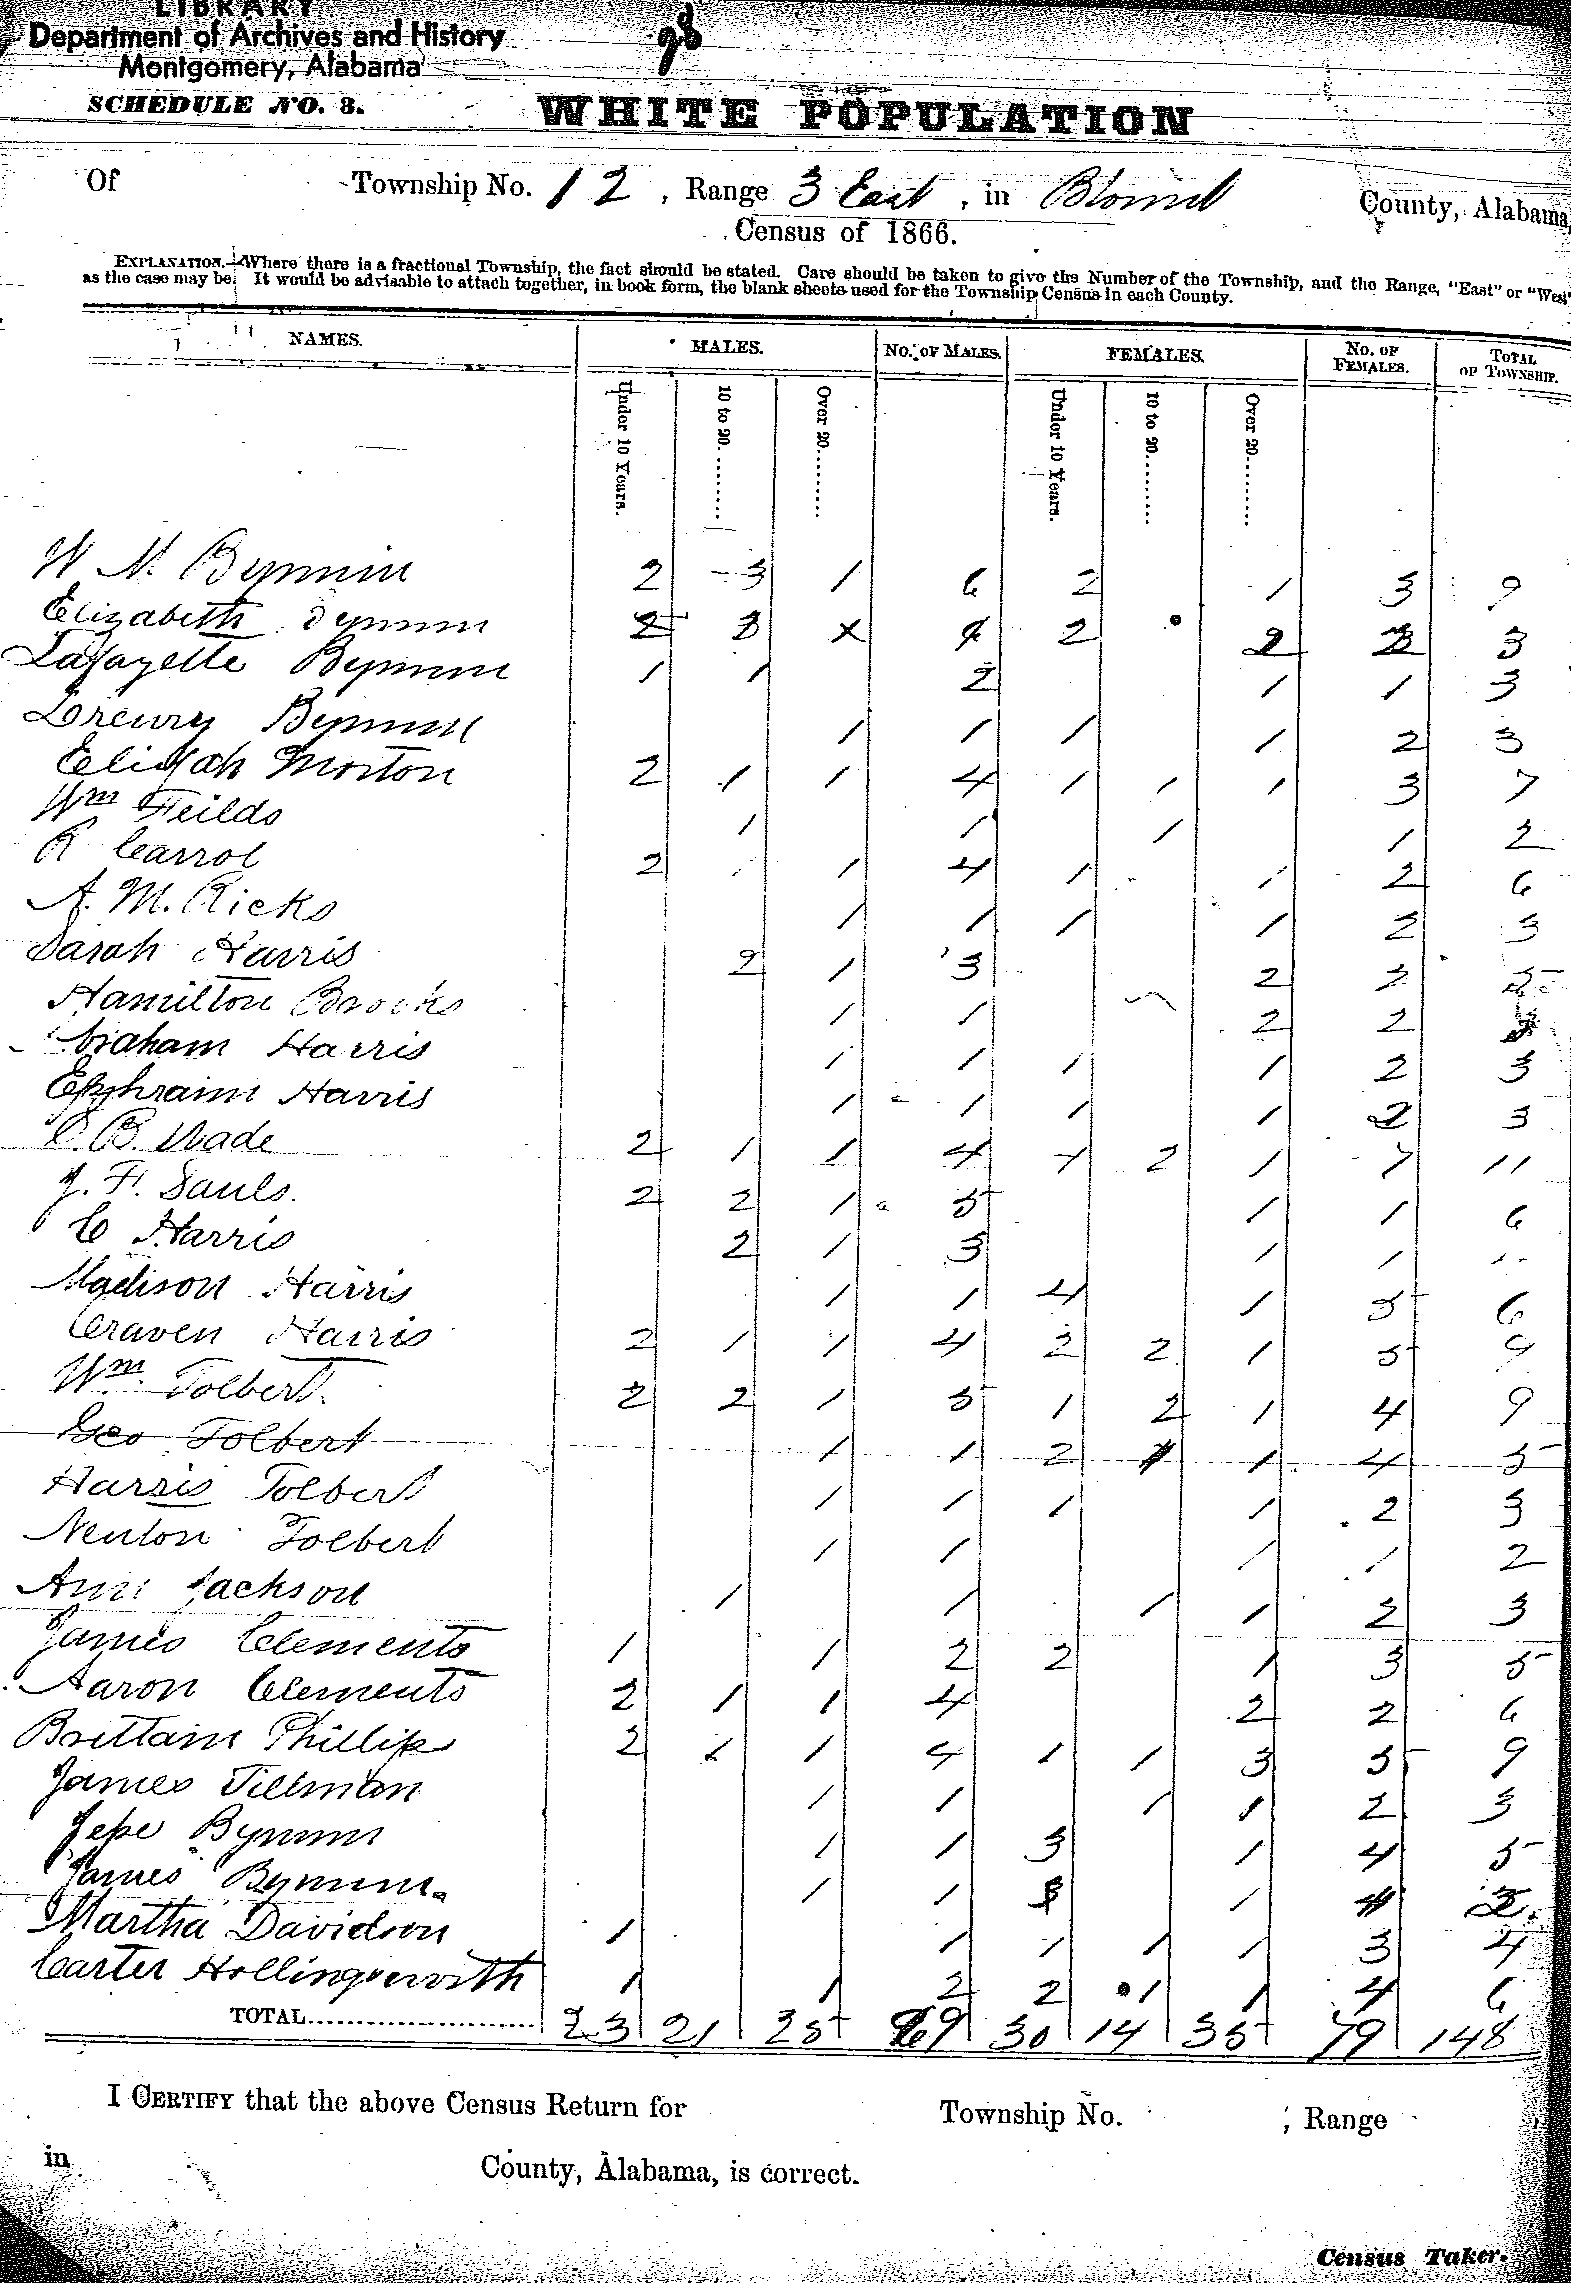 LIBRARY
Department of Archives and History
Montgomery, Alabama
98
SCHEDULE NO. 3. WHITE POPULATION
Of Township No. 12, Range 3 East, in Blount County, Alabama,
Census of 1866.
EXPLANATION.—Where there is a fractional Township, the fact should be stated. Care should be taken to give the Number of the Township, and the Range, "East" or "West"
as the case may be. It would be advisable to attach together, in book form, the blank sheets used for the Township Census in each County.
NAMES. MALES. No. of Males. FEMALES. No. of Females. Total of Township.
Under 10 Years. 10 to 20. Over 20. Under 10 Years. 10 to 20. Over 20.
W M. Bynum 2 3 1 6 2 1 3 9
Elizabeth Bynum 2 2 3
Lafayette Bynum 1 1 2 1 1 3
Drewry Bynum 1 1 1 1 2 3
Elijah Morton 2 1 1 4 1 1 1 3 7
Wm Feilds 1 1 1 1 2
R Carrol 2 1 1 4 1 1 2 6
A. M. Ricks 1 1 1 1 2 3
Sarah Harris 2 1 3 2 2 5
Hamilton Brooks 1 1 2 2
Abraham Harris 1 1 1 1 2 3
Ephraim Harris 1 1 1 1 2 3
C. B. Wade 2 1 1 4 4 2 1 7 11
J. F. Sauls. 2 2 1 5 1 1 6
C Harris 2 1 3 1 1
Madison Harris 1 1 4 1 5 6
Craven Harris 2 1 1 4 2 2 1 5 9
Wm. Tolbert. 2 2 1 5 1 2 1 4 9
Geo Tolbert 1 1 2 1 1 4 5
Harris Tolbert 1 1 1 1 2 3
Neuton Tolbert 1 1 1 1 2
Ann Jackson 1 1 1 1 2 3
James Clements 1 1 2 2 1 3 5
Aaron Clements 2 1 1 4 2 2 6
Brittain Phillips 2 1 1 4 1 1 3 5 9
James Tillman 1 1 1 1 2 3
Jesse Bynum 1 1 3 1 4 5
James Bynum. 1 1 1
Martha Davidson 1 1 1 1 1 3 4
Carter Hollingsworth 1 1 2 2 1 1 4 6
TOTAL 23 21 25 69 30 14 35 79 148
I CERTIFY that the above Census Return for Township No. ; Range
in County, Alabama, is correct.
Census Taker.